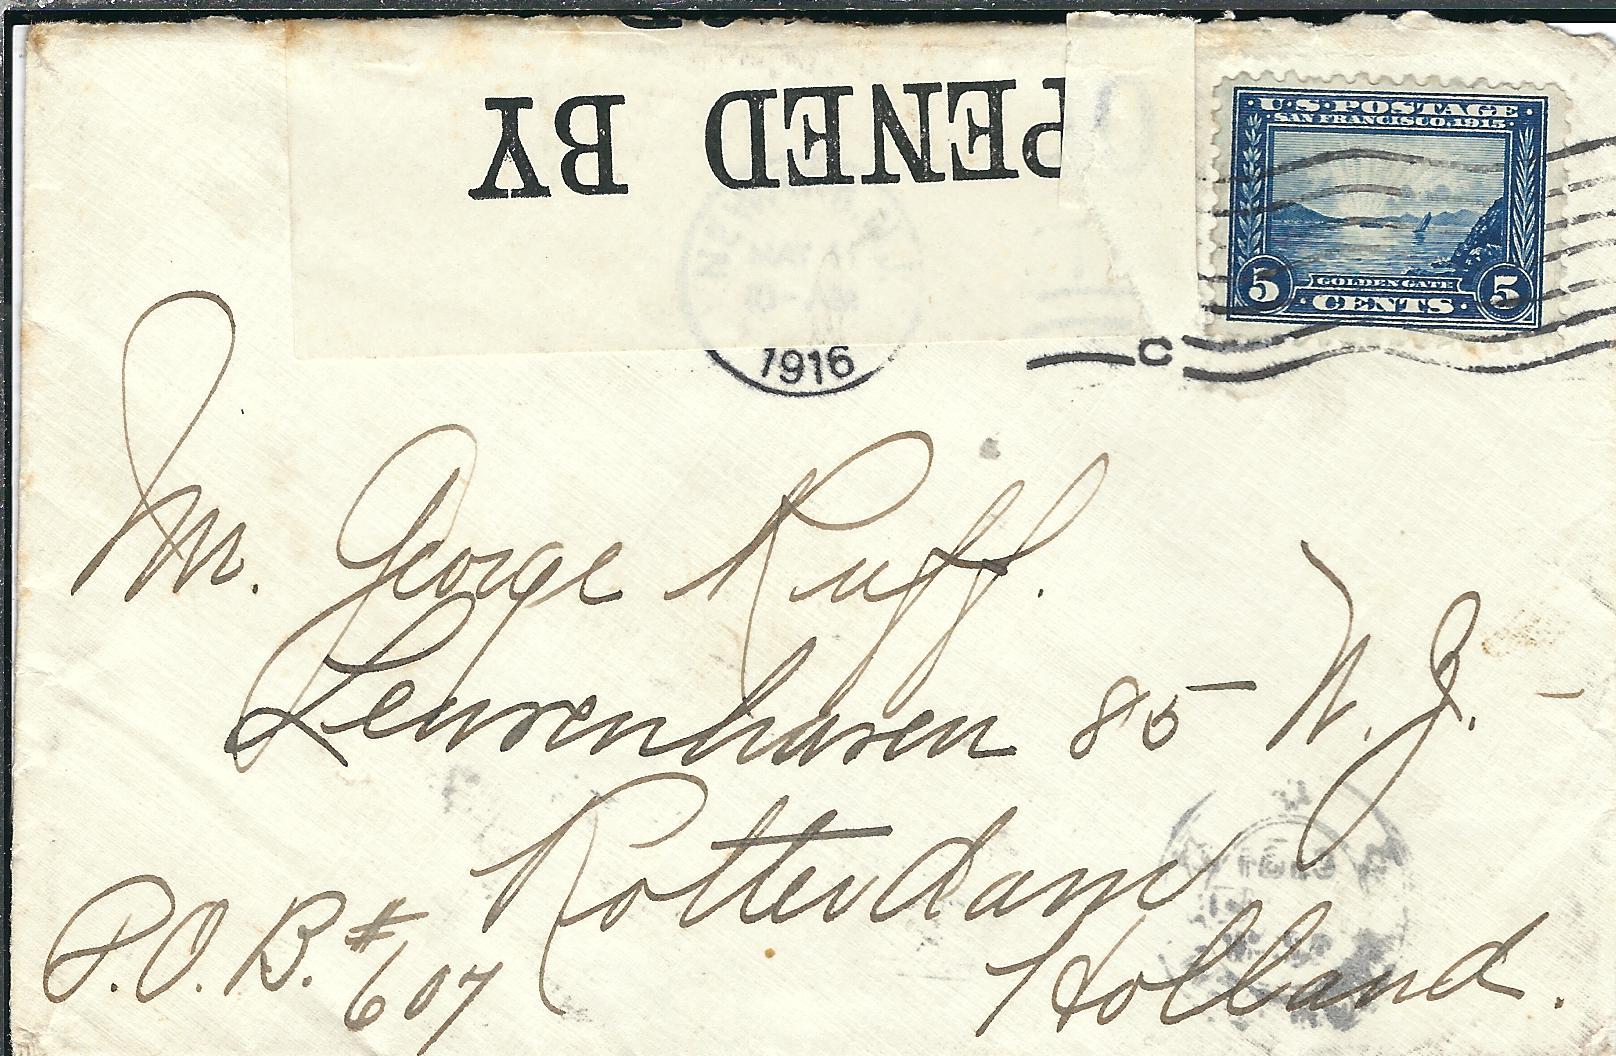 OPENED BY
U.S. POSTAGE
SAN FRANCISCO, 1915
5 GOLDEN GATE 5
CENTS
NEW
1916
C
Mr. George Ruff.
Leuvenhaven 85 N. Z. -
Rotterdam
Holland.
P.O. B. # 607